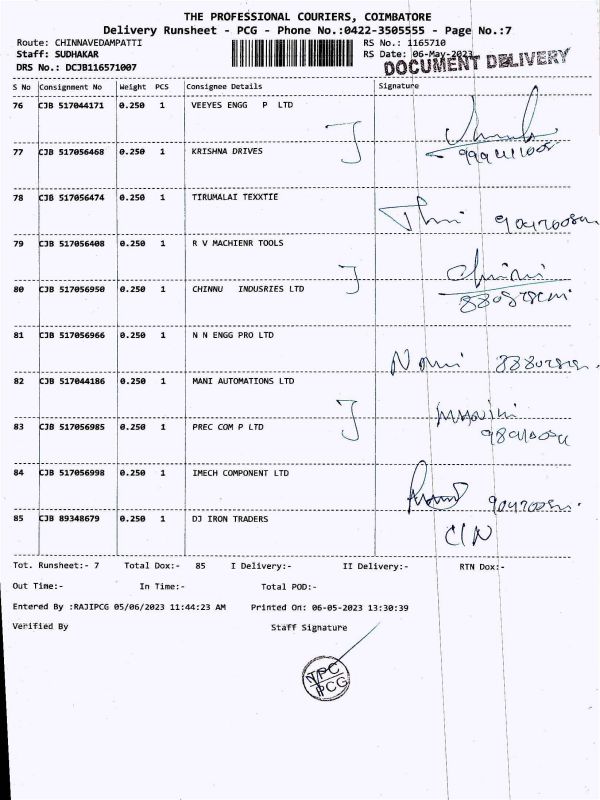 THE PROFESSIONAL COURIERS, COIMBATORE
Delivery Runsheet - PCG - Phone No.:0422-3505555 - Page No.:7
Route: CHINNAVEDAMPATTI RS No.: 1165710
Staff: SUDHAKAR RS Date: 06-May-2023
DRS No.: DCJB116571007 DOCUMENT DELIVERY
S No Consignment No Weight PCS Consignee Details Signature
76 CJB 517044171 0.250 1 VEEYES ENGG P LTD
77 CJB 517056468 0.250 1 KRISHNA DRIVES
78 CJB 517056474 0.250 1 TIRUMALAI TEXXTIE
79 CJB 517056408 0.250 1 R V MACHIENR TOOLS
80 CJB 517056950 0.250 1 CHINNU INDUSRIES LTD
81 CJB 517056966 0.250 1 N N ENGG PRO LTD
82 CJB 517044186 0.250 1 MANI AUTOMATIONS LTD
83 CJB 517056985 0.250 1 PREC COM P LTD
84 CJB 517056998 0.250 1 IMECH COMPONENT LTD
85 CJB 89348679 0.250 1 DJ IRON TRADERS
Tot. Runsheet:- 7 Total Dox:- 85 I Delivery:- II Delivery:- RTN Dox:-
Out Time:- In Time:- Total POD:-
Entered By :RAJIPCG 05/06/2023 11:44:23 AM Printed On: 06-05-2023 13:30:39
Verified By Staff Signature
NPC
PCG